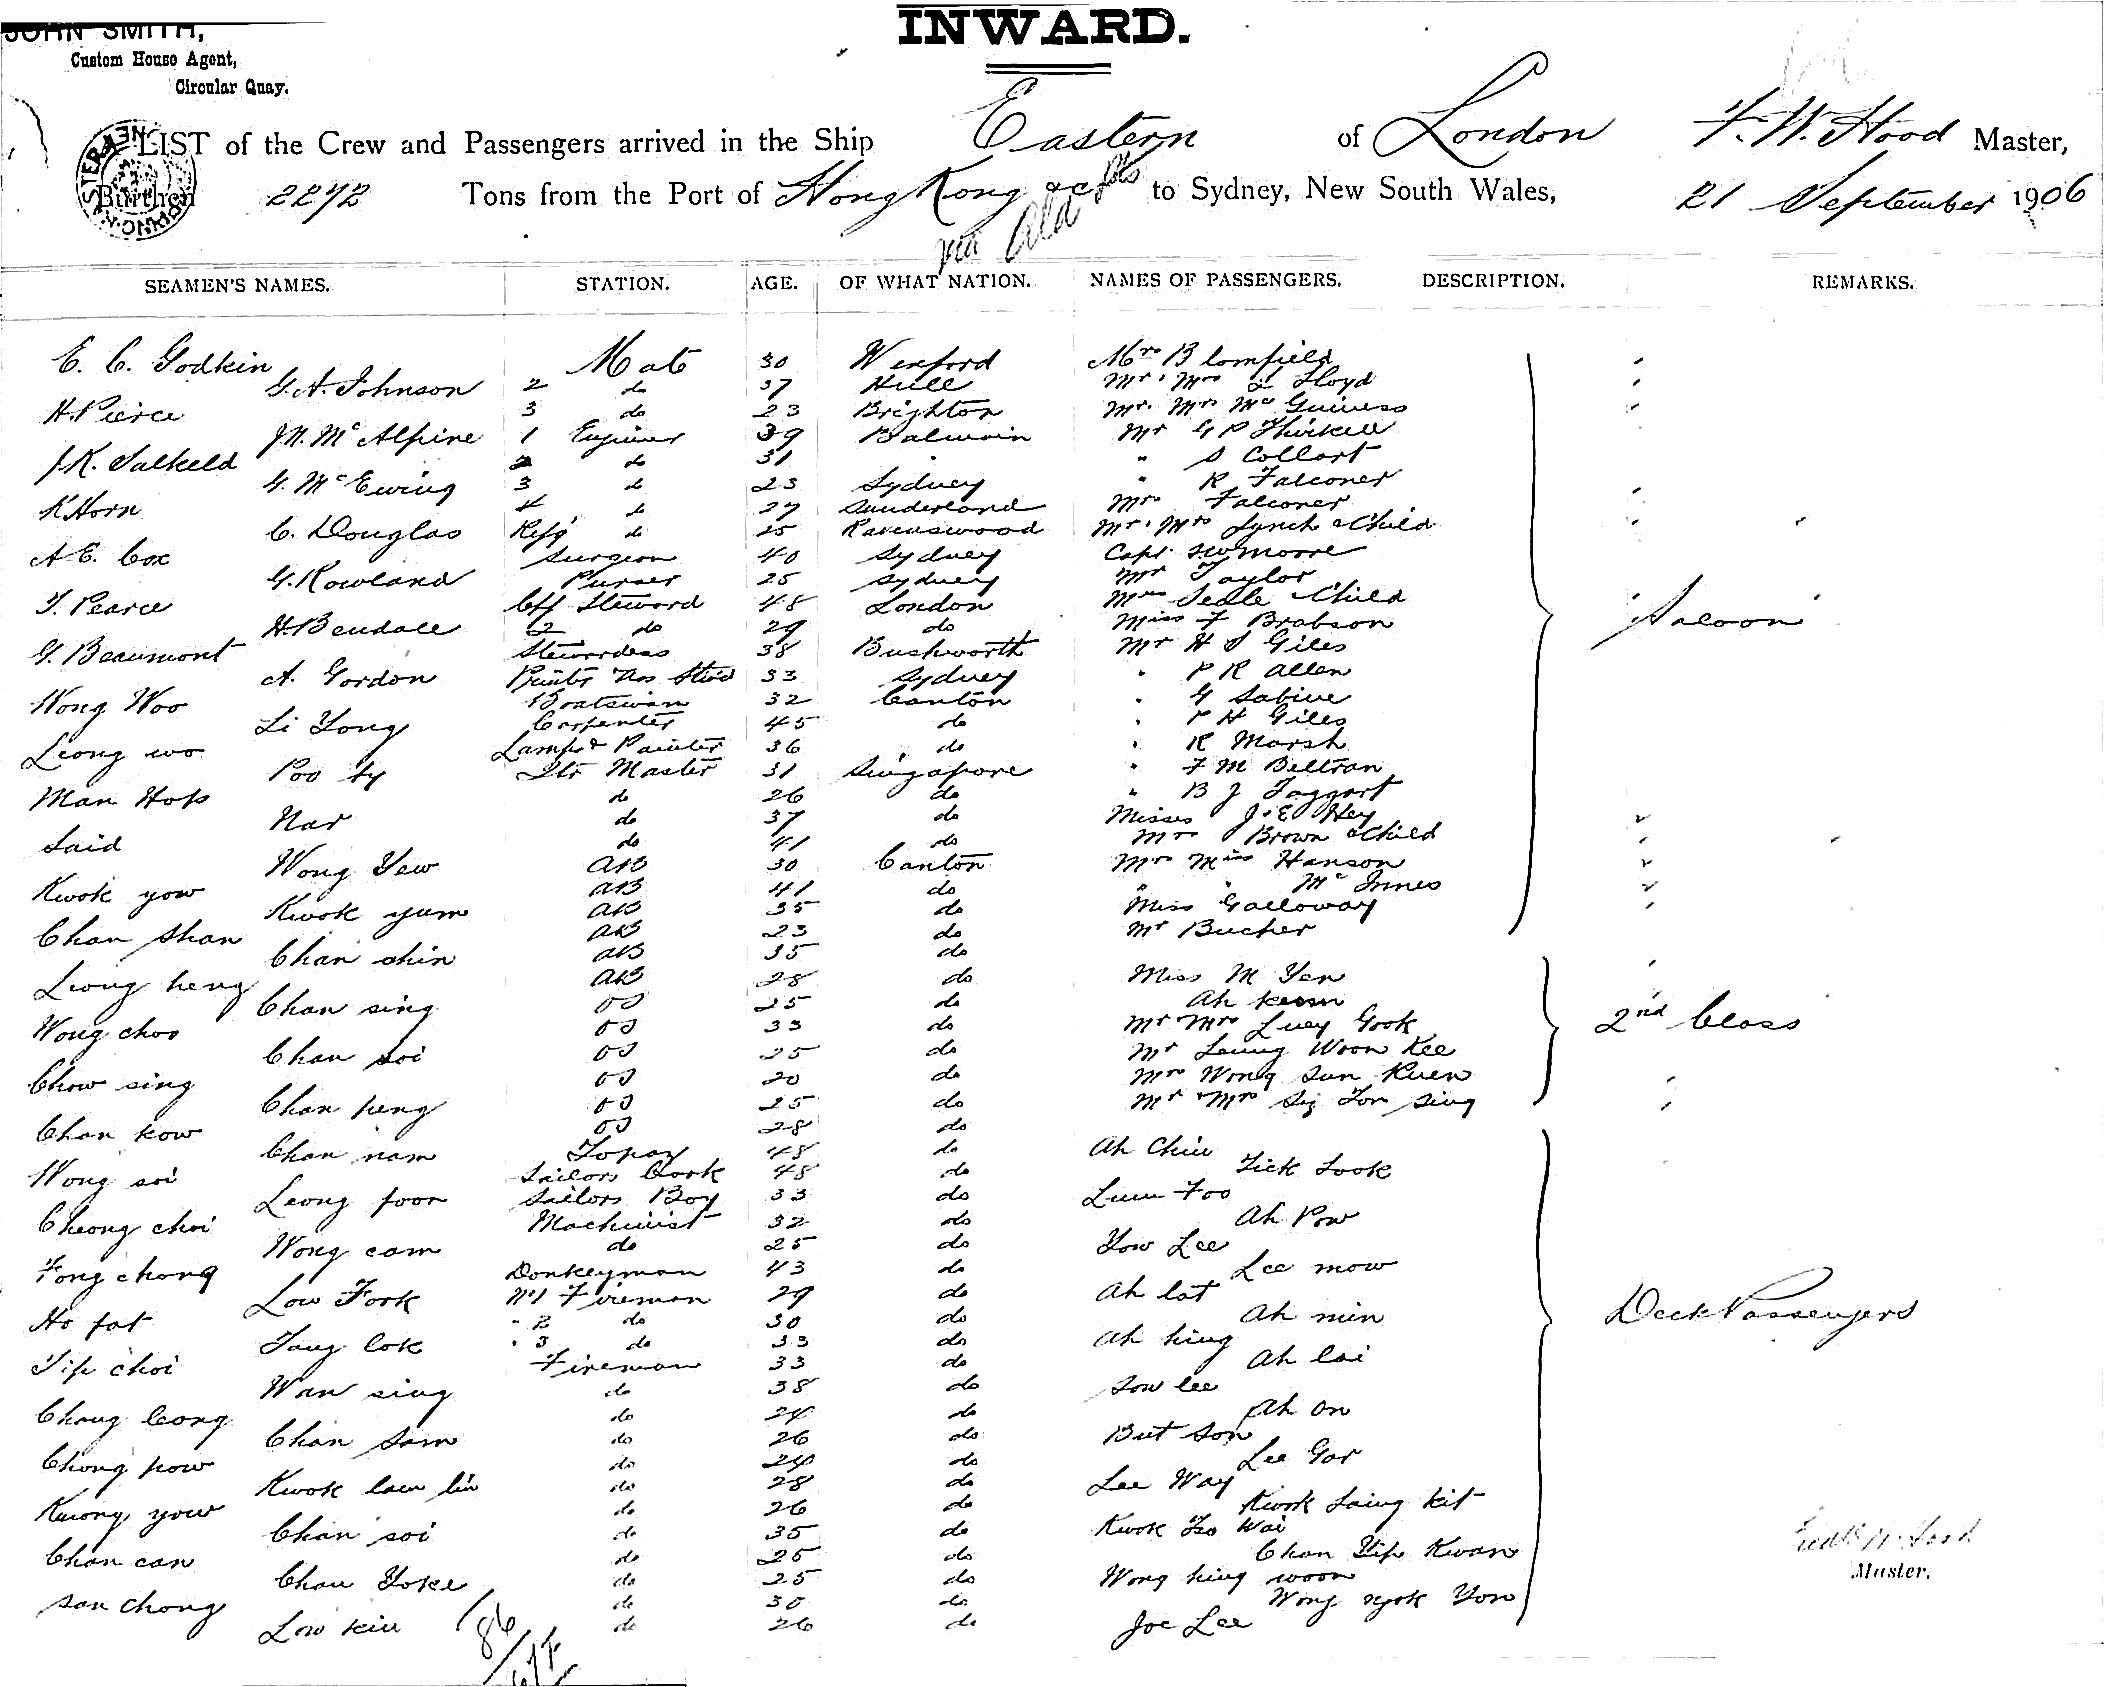 INWARD.
JOHN SMITH,
Custom House Agent,
Circular Quay.
LIST of the Crew and Passengers arrived in the Ship Eastern of London F. W. Hood Master,
Burthen 2272 Tons from the Port of Hong Kong &c to Sydney, New South Wales, 21 September 1906
SEAMEN'S NAMES. STATION. AGE. OF WHAT NATION. NAMES OF PASSENGERS. DESCRIPTION. REMARKS.
E. C. Godkin Mate 30 Wexford Mrs Blomfield
G. A. Johnson 2 do 37 Hull Mr & Mrs Lloyd
H. Pierce 3 do 23 Brighton Mr. Mrs McGuiness
J. N. McAlpine 1 Engineer 39 Balmain Mr G P Thirkell
J. K. Salkeld 2 do 31 " S Collart
G. McEwing 3 do 23 Sydney " R Falconer
K Horn 4 do 27 Sunderland Mrs Falconer
C. Douglas Refg do 25 Ravenswood Mr & Mrs Lynch & Child
A. E. Cox Surgeon 40 Sydney Capt SW Moore
G. Rowland Purser 25 Sydney Mr Taylor
T. Pearce Cff Steward 48 London Mrs Seale Child
H. Bendall 2 do 29 do Miss F Brabson
G. Beaumont Stewardess 38 Bushworth Mr H S Giles
A. Gordon 33 Sydney " P R Allen
Wong Woo Boatswan 32 Canton " G Sabine
Li Yong Carpenter 45 do " P H Giles
Leong wo Lamps & Painter 36 do " R Marsh
Poo ty Qtr Master 31 Singapore " F M Beltran
Man Hop do 26 do " B J Taggart
Nar do 37 do Misses J. E Hey
Said do 41 do Mrs Brown & Child
Wong Yew AB 30 Canton Mrs Miss Hanson
Kwok yow AB 41 do " " McInnes
Kwok yum AB 35 do Miss Galloway
Chan Shan AB 23 do Mr Bucher
Saloon
Chan chin AB 35 do
Leong heng AB 28 do Miss M Yen
Chan sing OS 25 do Ah
Wong choo OS 33 do Mr Mrs Luey Gook
2nd Class
Chan soi OS 25 do Mr Leung Woon Kee
Chow sing OS 20 do Mrs Wong Sun Kuen
Chan heng OS 25 do Mr & Mrs Sing
Chan kow OS 28 do
Chan nam Topaz 48 do Ah Chiu
Wong soi Sailors Cook 48 do Tick Took
Leong foon Sailors Boy 33 do Lum Foo
Cheong choi Machinist 32 do Ah Pow
Wong cam do 25 do Yow Lee
Fong chong Donkeyman 43 do Lee mow
Low Fook No1 Fireman 29 do Ah lat
Ho fat " 2 do 30 do Ah min
Deck Passengers
Tang Cok " 3 do 33 do Ah hing
Yip choi Fireman 33 do Ah lai
Wan sing do 38 do Sow lee
Chang Leong do 24 do Ah on
Chan Sam do 26 do But Son
Chong pow do 24 do Lee Gor
Kwok law lin do 28 do Lee Way
Kwong yow do 26 do Kwok Saing kit
Chan soi do 35 do Kwok Tso Wai
Chan can do 25 do Chan Yip Kwan
Chan Yoke do 25 do Wong hing woon
San chong do 30 do Wong ngok Yow
Low kin do 26 do Joe Lee
86
Master.